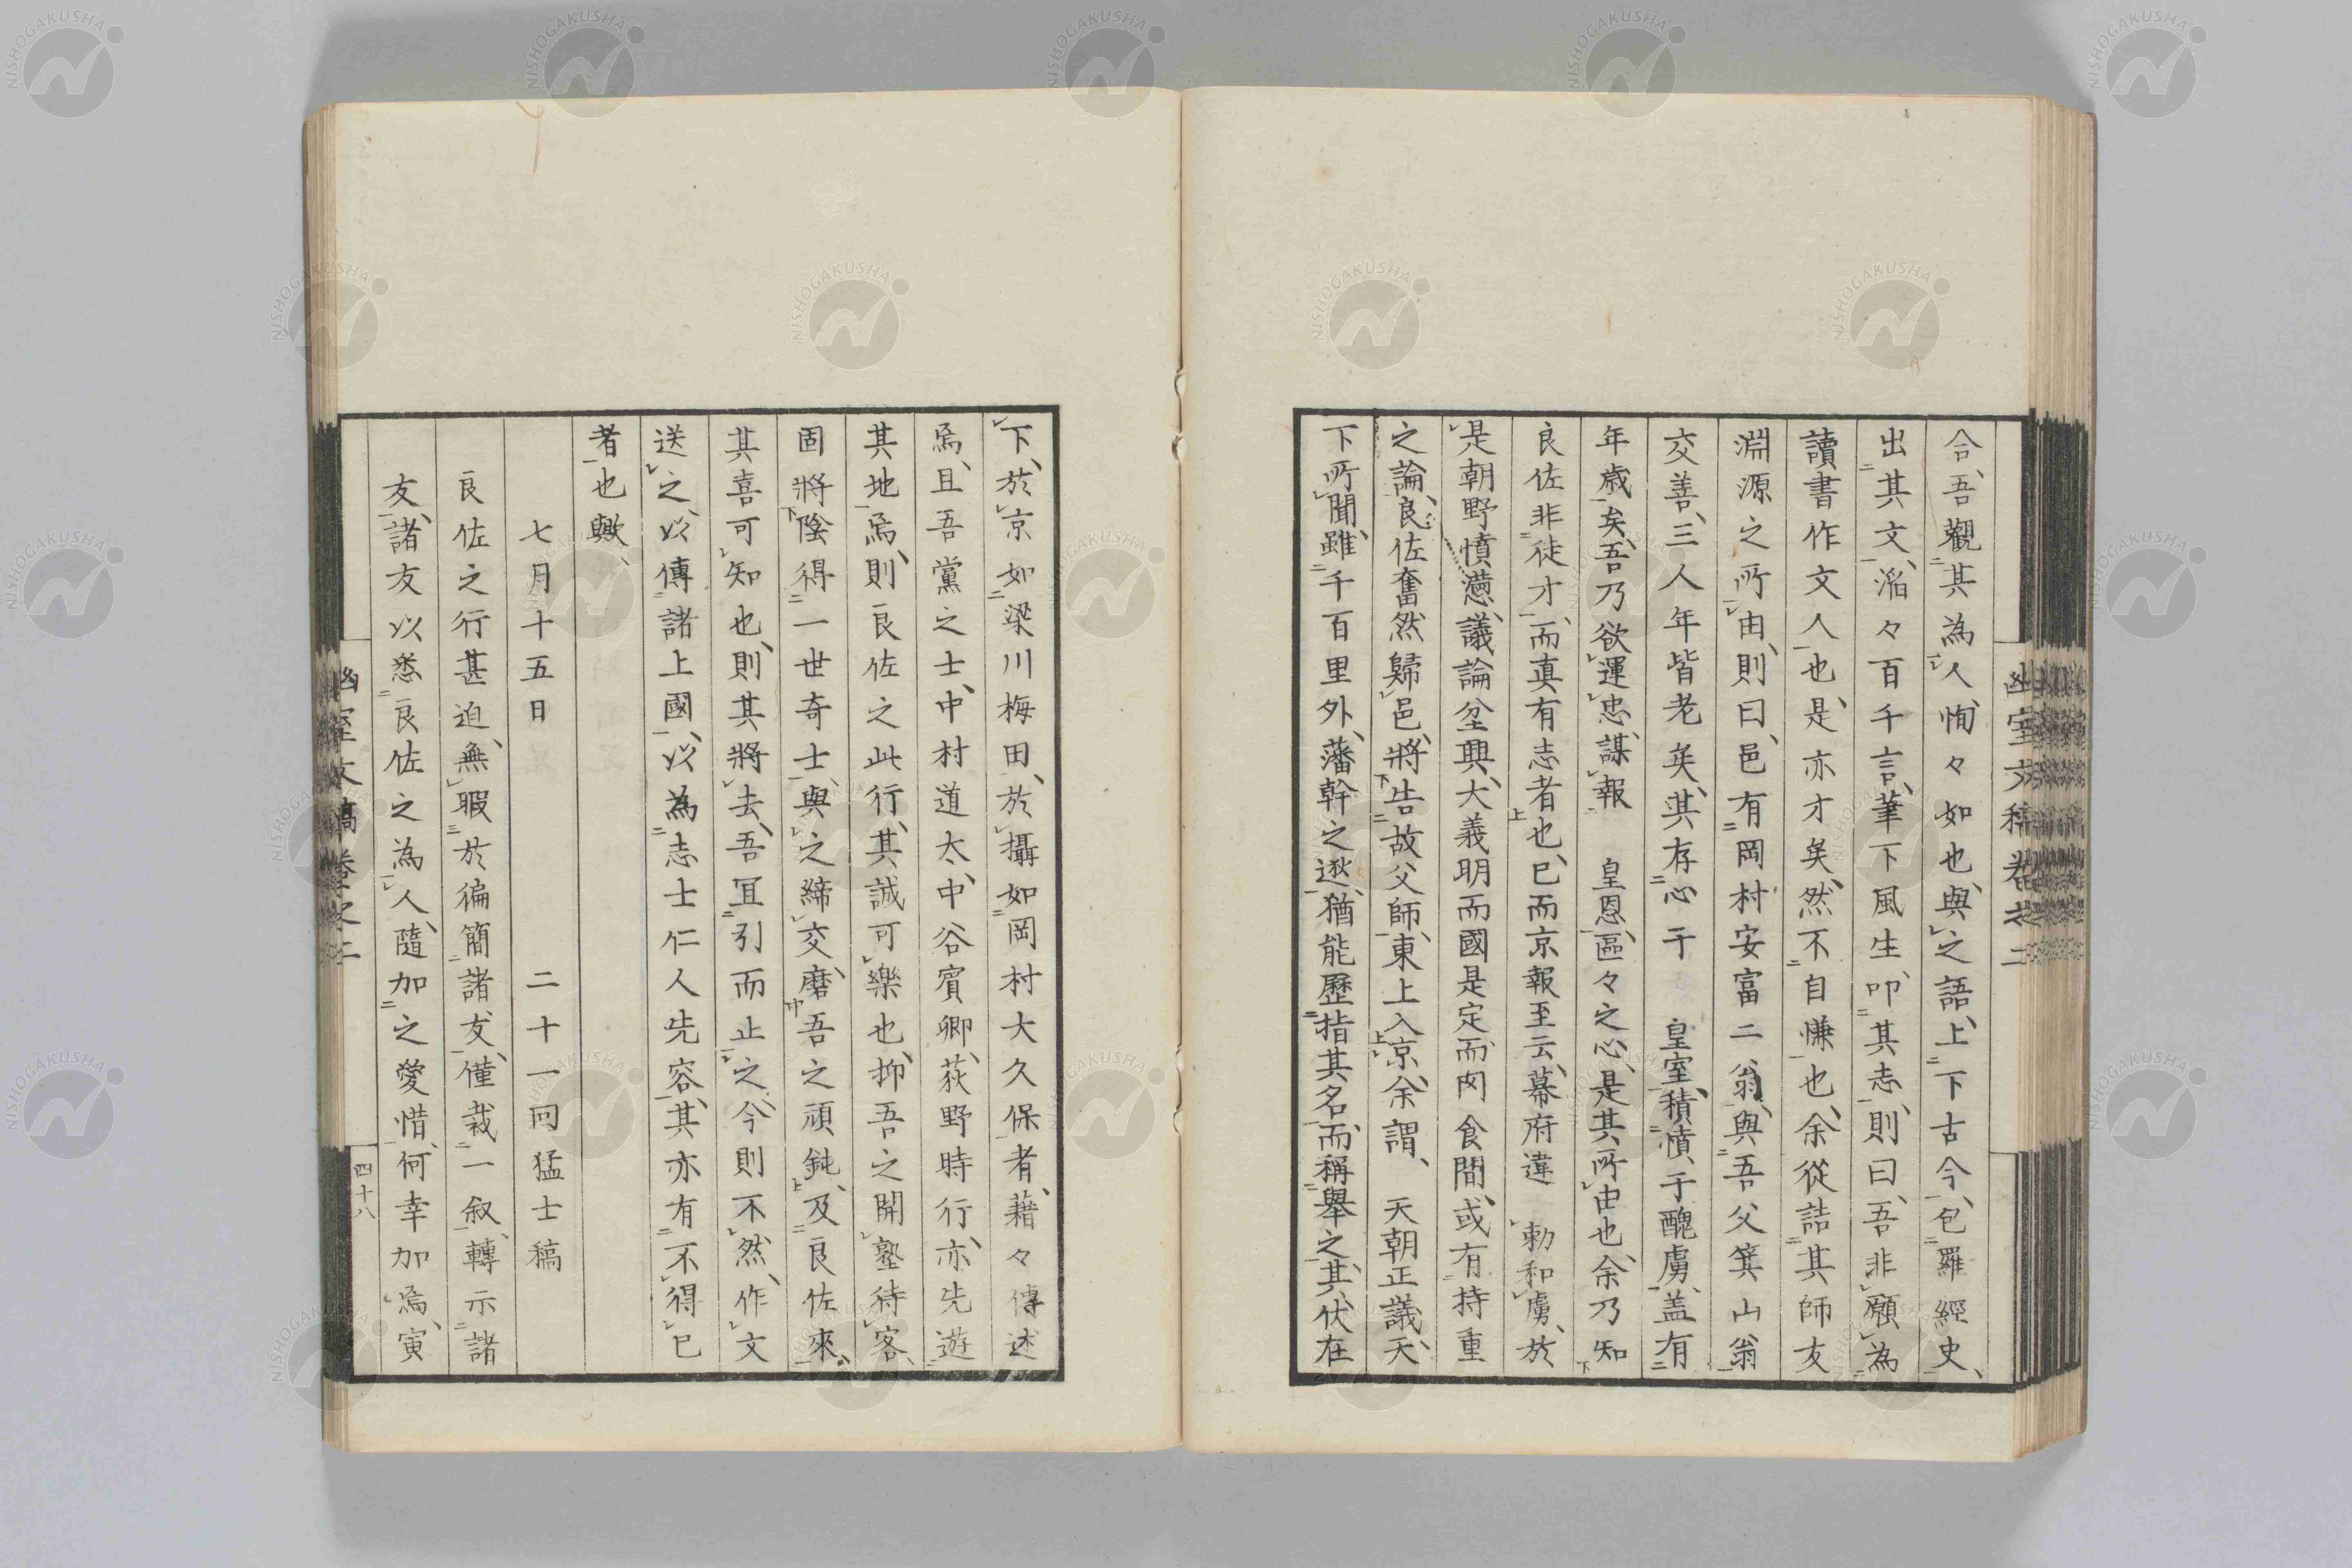 合、吾觀其為人、恂々如也、與之語、上下古今、包羅經史、
出其文、滔々百千言、筆下風生、叩其志、則曰、吾非願為
讀書作文人也、是亦才矣、然不自慊也、余從詰其師友
淵源之所由、則曰、邑有岡村安富二翁、與吾父箕山翁
交善、三人年皆老矣、其存心于　皇室、積憤于醜虜、蓋有
年歲矣、吾乃欲運忠謀報　皇恩、區々之心、是其所由也、余乃知
良佐非徒才、而真有志者也、已而京報至云、幕府違　勅和虜、於
是朝野憤懣、議論坌興、大義明而國是定、而肉食間、或有持重
之論、良佐奮然歸邑、將告故父師、東上入京、余謂、　天朝正議、天
下所聞、雖千百里外、藩幹之逖、猶能歷指其名、而稱舉之、其伏在
下、於京如梁川梅田、於攝如岡村大久保者、藉々傳述
焉、且吾黨之士、中村道太、中谷賓卿、荻野時行、亦先遊
其地焉、則良佐之此行、其誠可樂也、抑吾之開塾待客、
固將陰得一世奇士、與之締交、磨吾之頑鈍、及良佐來、
其喜可知也、則其將去、吾宜引而止之、今則不然、作文
送之、以傳諸上國、以為志士仁人先容、其亦有不得已
者也歟、
七月十五日　二十一回猛士稿
良佐之行甚迫、無暇於徧簡諸友、僅裁一叙、轉示諸
友、諸友以悉良佐之為人、隨加之愛惜、何幸加焉、寅
幽室文稿卷之二
四十八
NISHOGAKUSHA